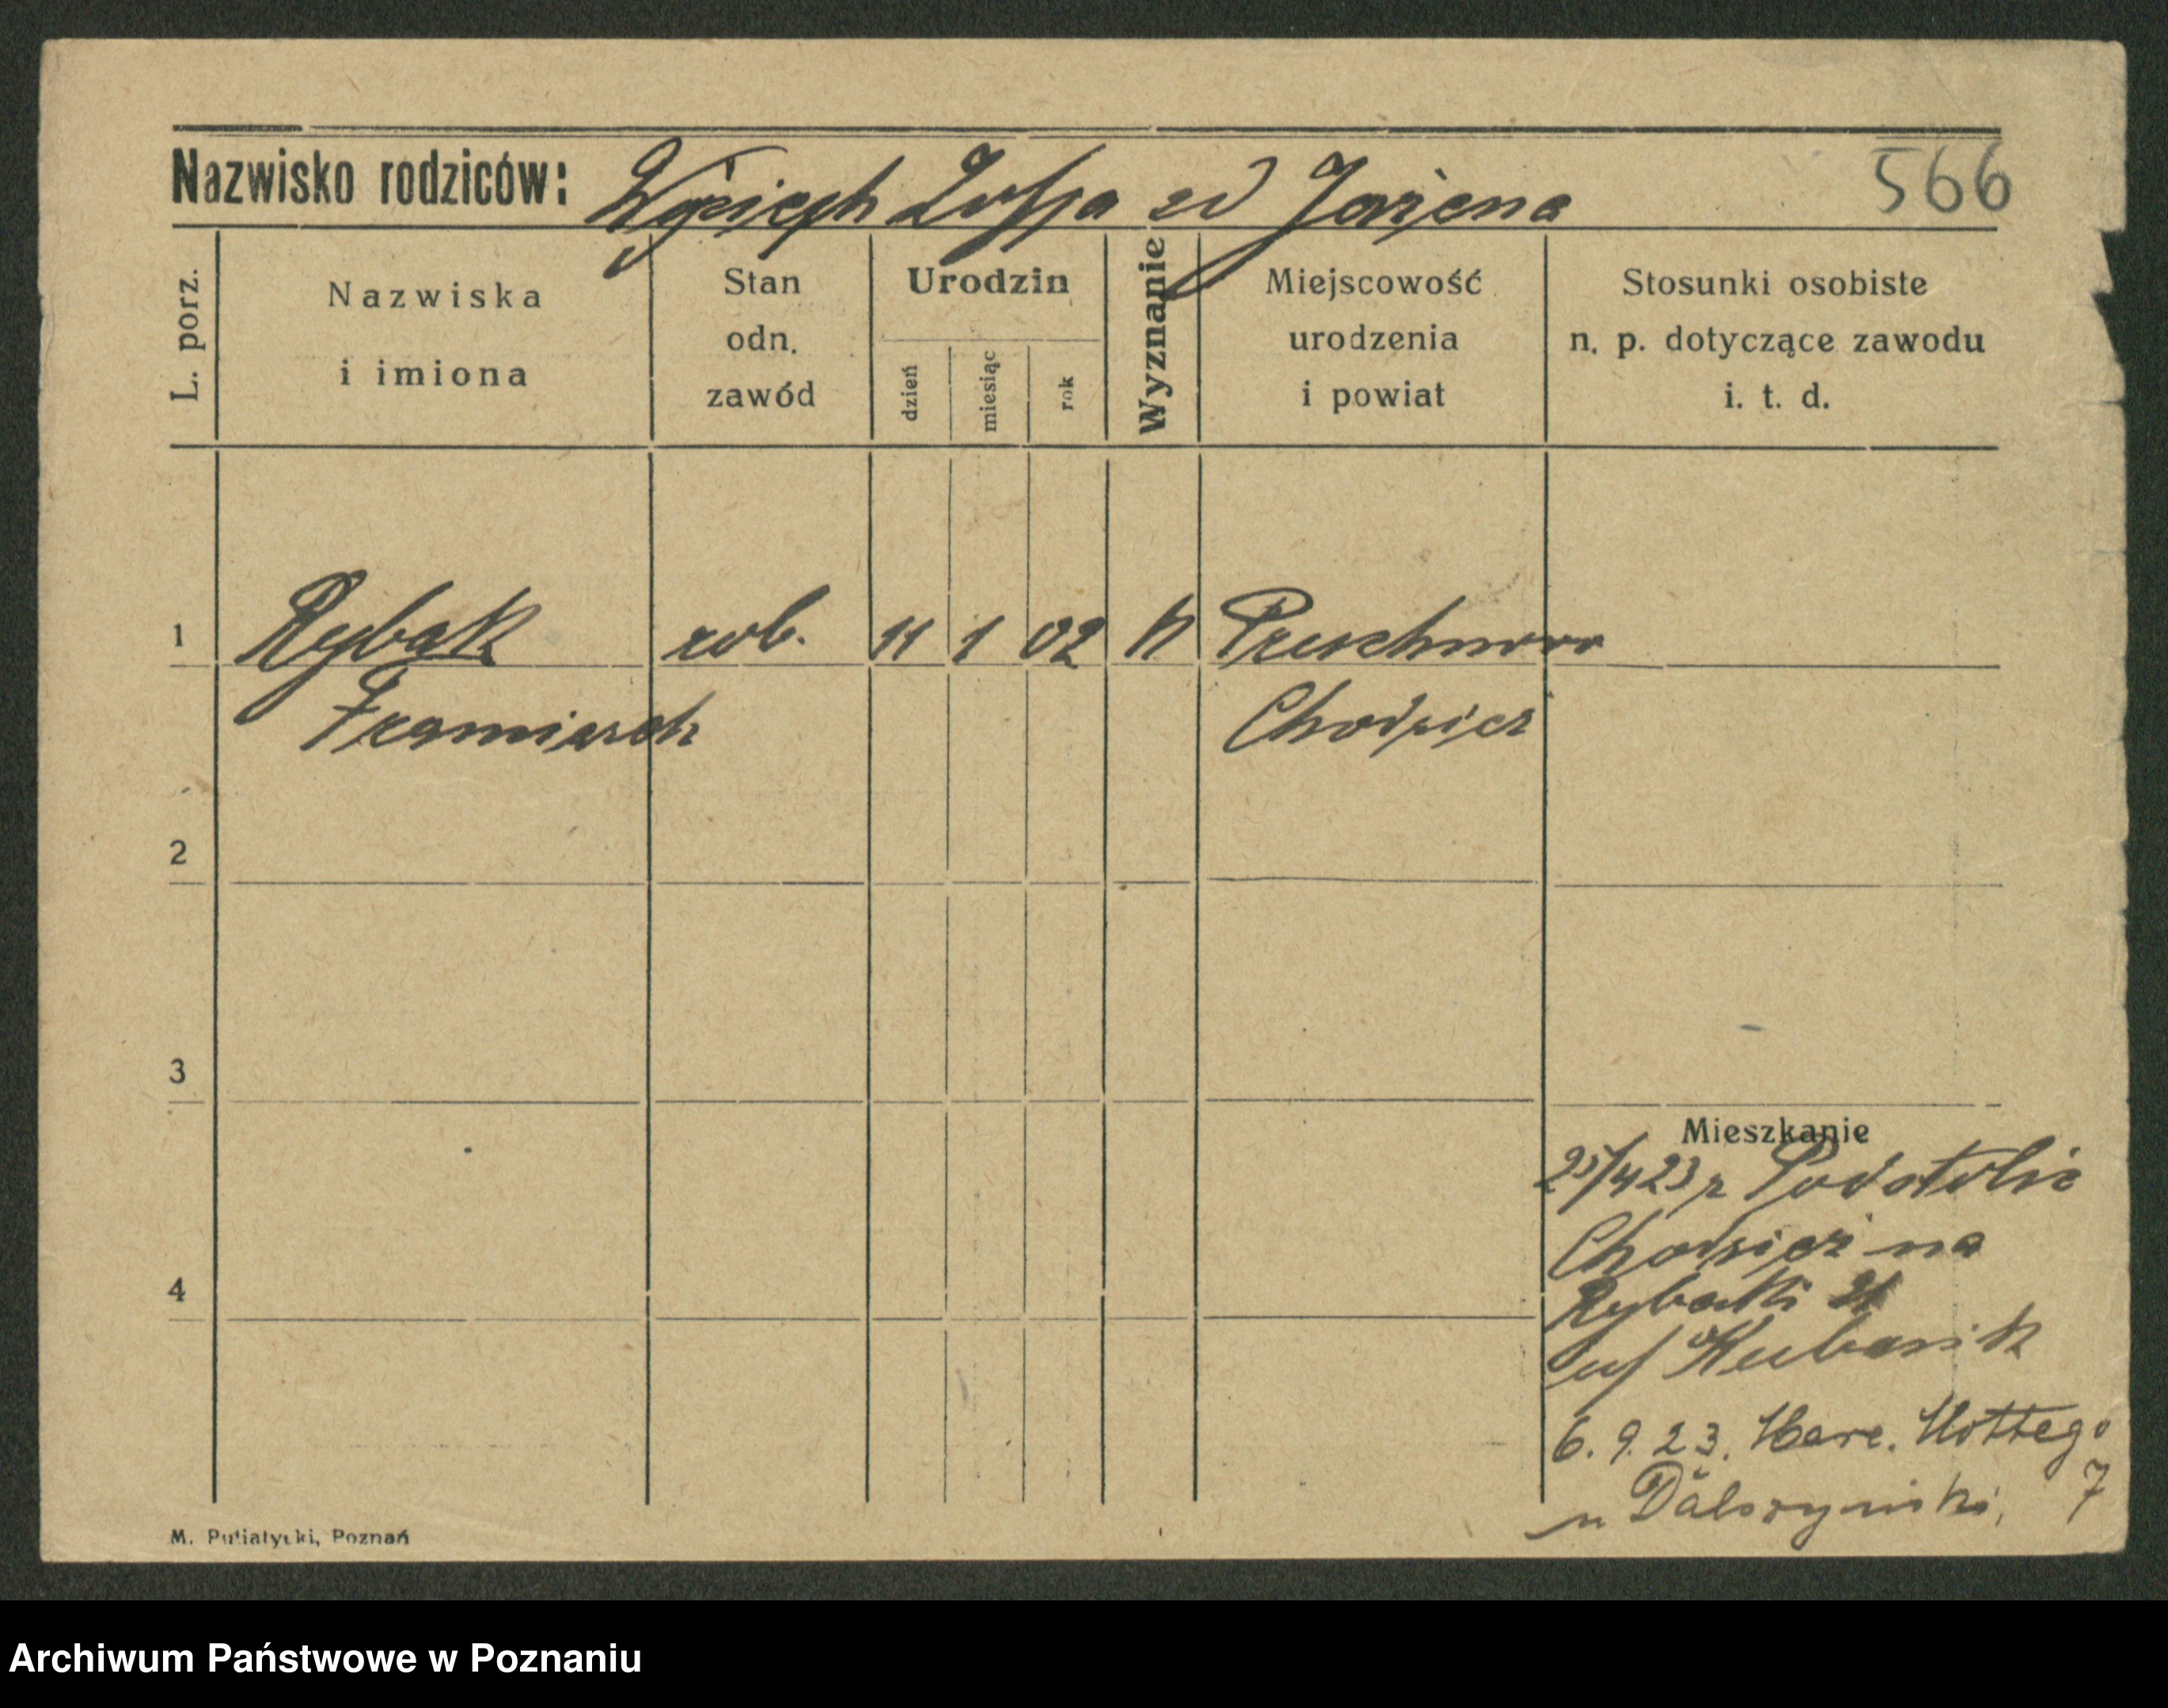 Nazwisko rodziców: Wojciech Zofja zd 566
L. porz.
Nazwiska i imiona
Stan odn. zawód
Urodzin
dzień
miesiąc
rok
Wyznanie
Miejscowość urodzenia i powiat
Stosunki osobiste n. p. dotyczące zawodu i. t. d.
1 Rybak rob. 11 1 02 K
Chodzież
2
3
4
Mieszkanie
25/4 23 z Podstolic
Chodzież na
Rybaki
u/ Kubasik
6. 9. 23. Marc. Mottego
u 7
M. Putiatycki, Poznań
Archiwum Państwowe w Poznaniu